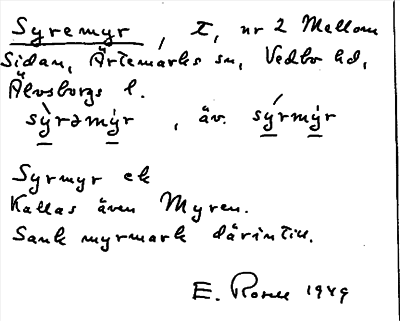 Syremyr, t, nr 2 Mellom
Sidan, Ärtemarks sn, Vedbo hd,
Älvsborgs l.
sỳrəmẏr, äv. sýrmẏr
Syrmyr ek
Kallas även Myren.
Sank myrmark därintill.
E. 1949